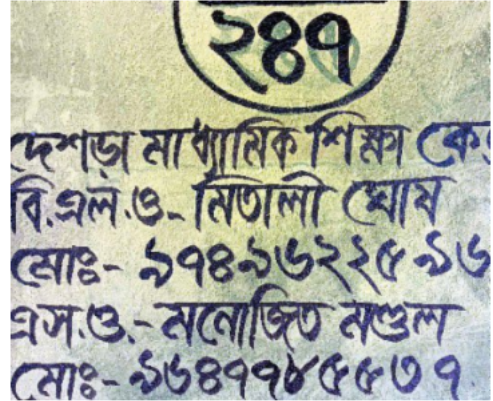 ২৪৭
দেশড়া মাধ্যমিক শিক্ষা কে
বি.এল.ও.- মিতালী ঘোষ
মোঃ- ৯৭৪৯৬২২৫৯৬
এস.ও.- মনোজিত মণ্ডল
মোঃ- ৯৬৪৭৭৮৫৫৩৭